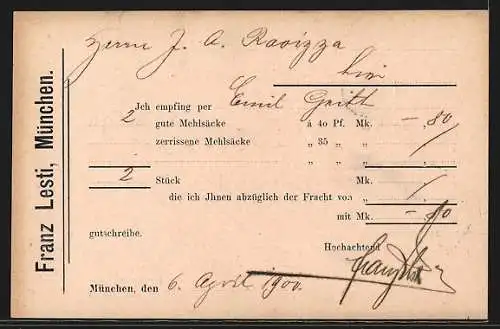 Franz Lesti, München.
Herrn J. A. Ravizza
hier
Ich empfing per Emil Gritt
2 gute Mehlsäcke á 40 Pf. Mk. —,80
zerrissene Mehlsäcke „ 35 „ „ /
„ „ „
2 Stück Mk. /
die ich Jhnen abzüglich der Fracht von „ /
mit Mk. —,80
gutschreibe.
Hochachtend
München, den 6. April 1900.